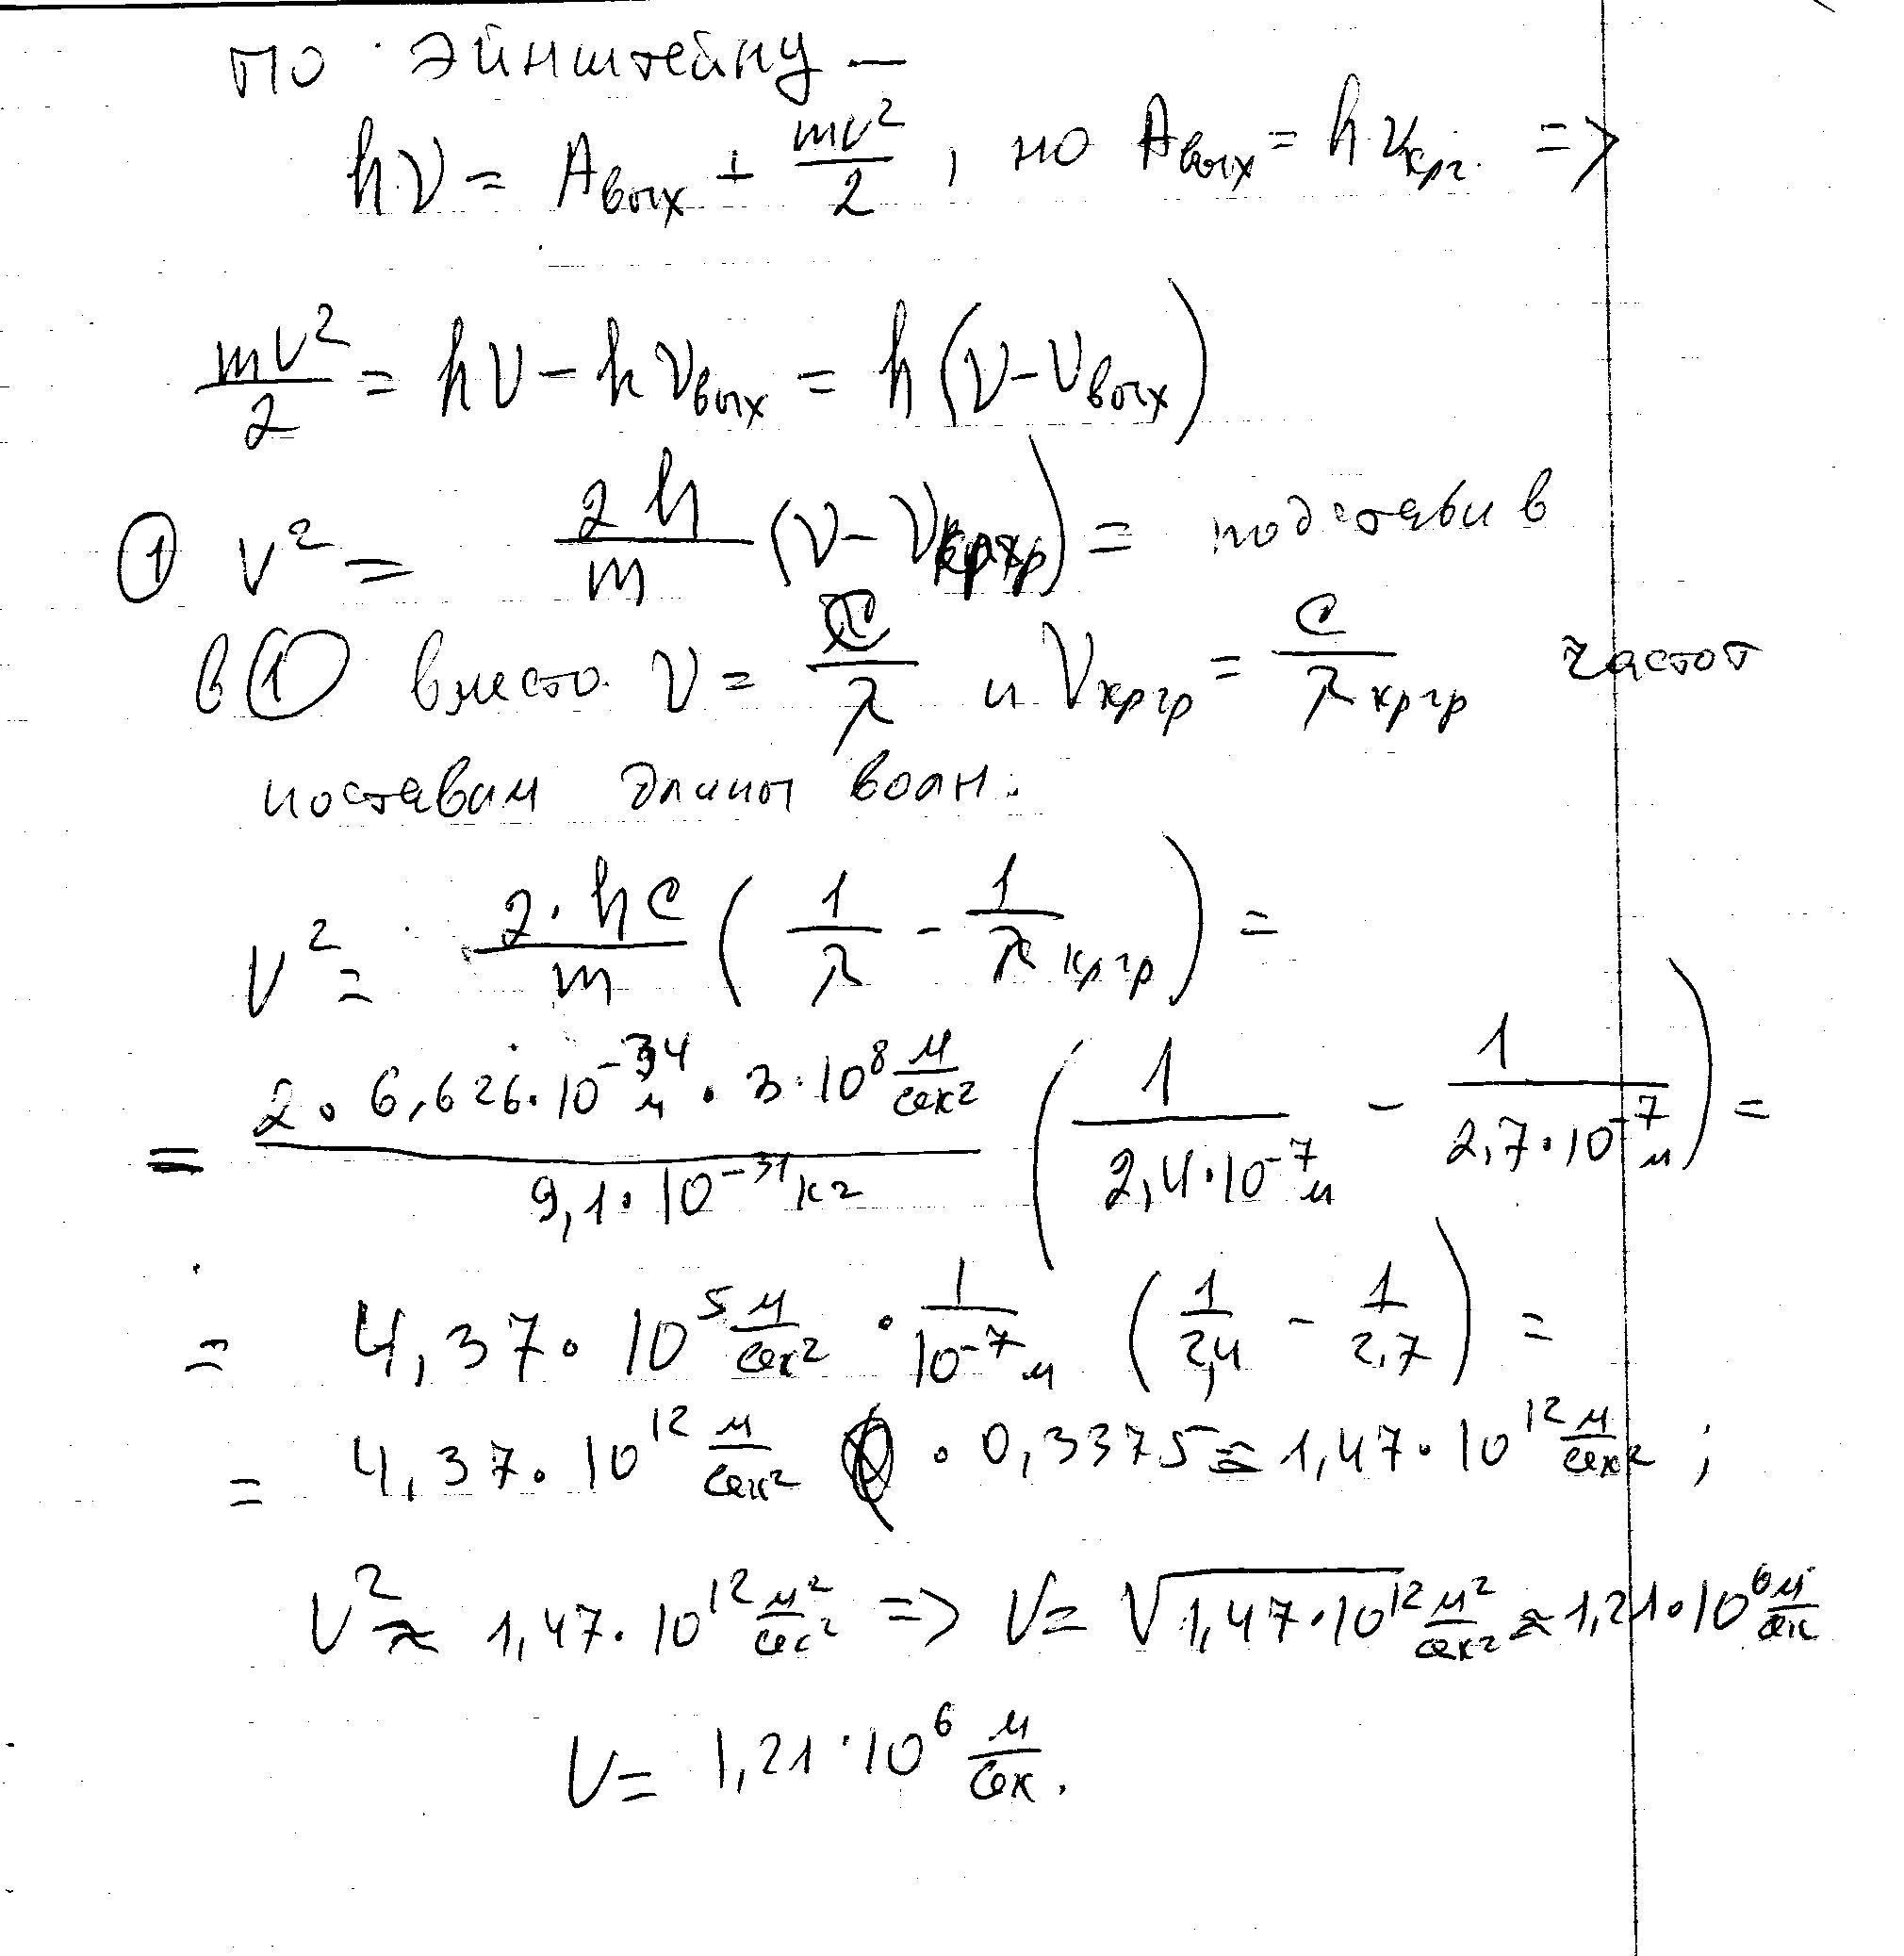 по Эйнштейну —
hν = Aвых + mv²/2 , но Aвых = hνкрг. =>
mv²/2 = hν − hνвых = h(ν − νвых)
① v² = 2h/m (ν − νкргр) = подставив
в ① вместо ν = c/λ и νкргр = c/λкргр частот
поставим длины волн.
v² = 2·hc/m (1/λ − 1/λкргр) =
= 2·6,626·10⁻³⁴ м · 3·10⁸ м/сек² / 9,1·10⁻³¹ кг (1/2,4·10⁻⁷ м − 1/2,7·10⁻⁷ м) =
= 4,37·10⁵ м/сек² · 1/10⁻⁷ м (1/2,4 − 1/2,7) =
= 4,37·10¹² м/сек² · 0,3375 ≈ 1,47·10¹² м/сек² ;
v² ≈ 1,47·10¹² м²/сек² => v = √1,47·10¹² м²/сек² ≈ 1,21·10⁶ м/сек
v = 1,21·10⁶ м/сек.